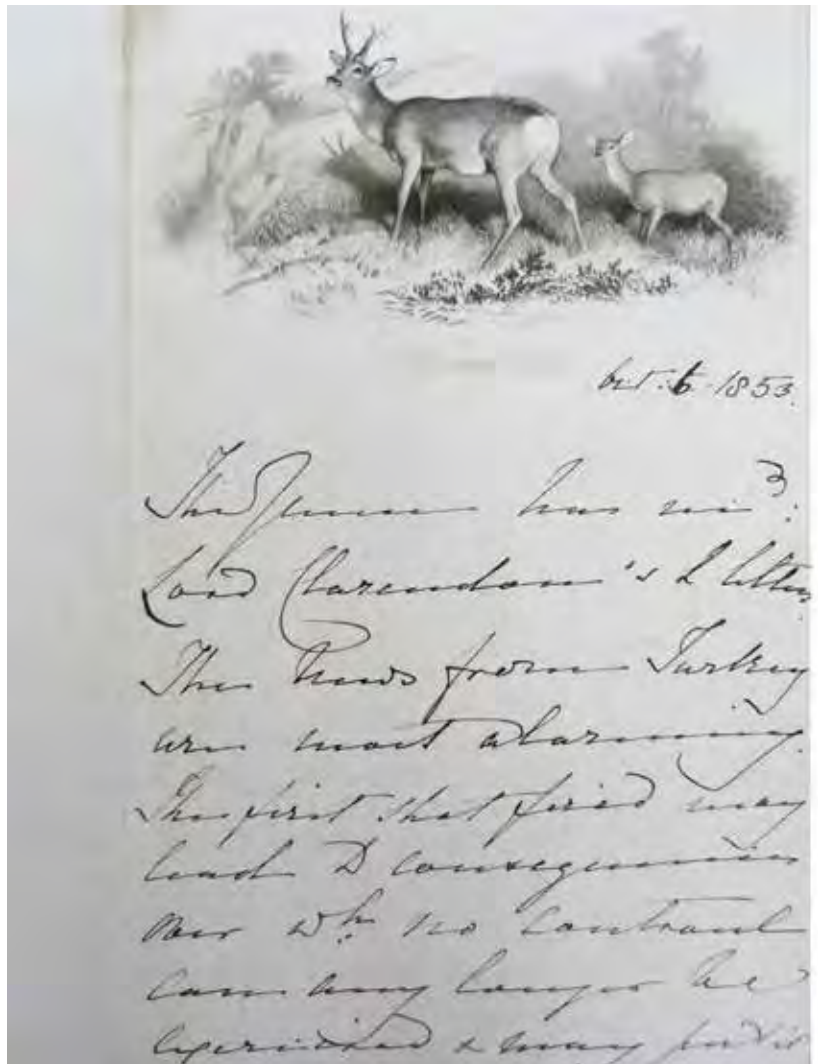 Oct. 6. 1853.
The Queen has recd:
Lord Clarendon's 2 letters
The News from Turkey
are most alarming.
The first shot fired may
lead to consequences
over wh: no controul
can any longer be
exercised & may